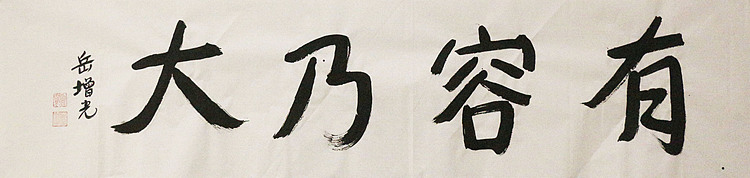 有容乃大
岳增光